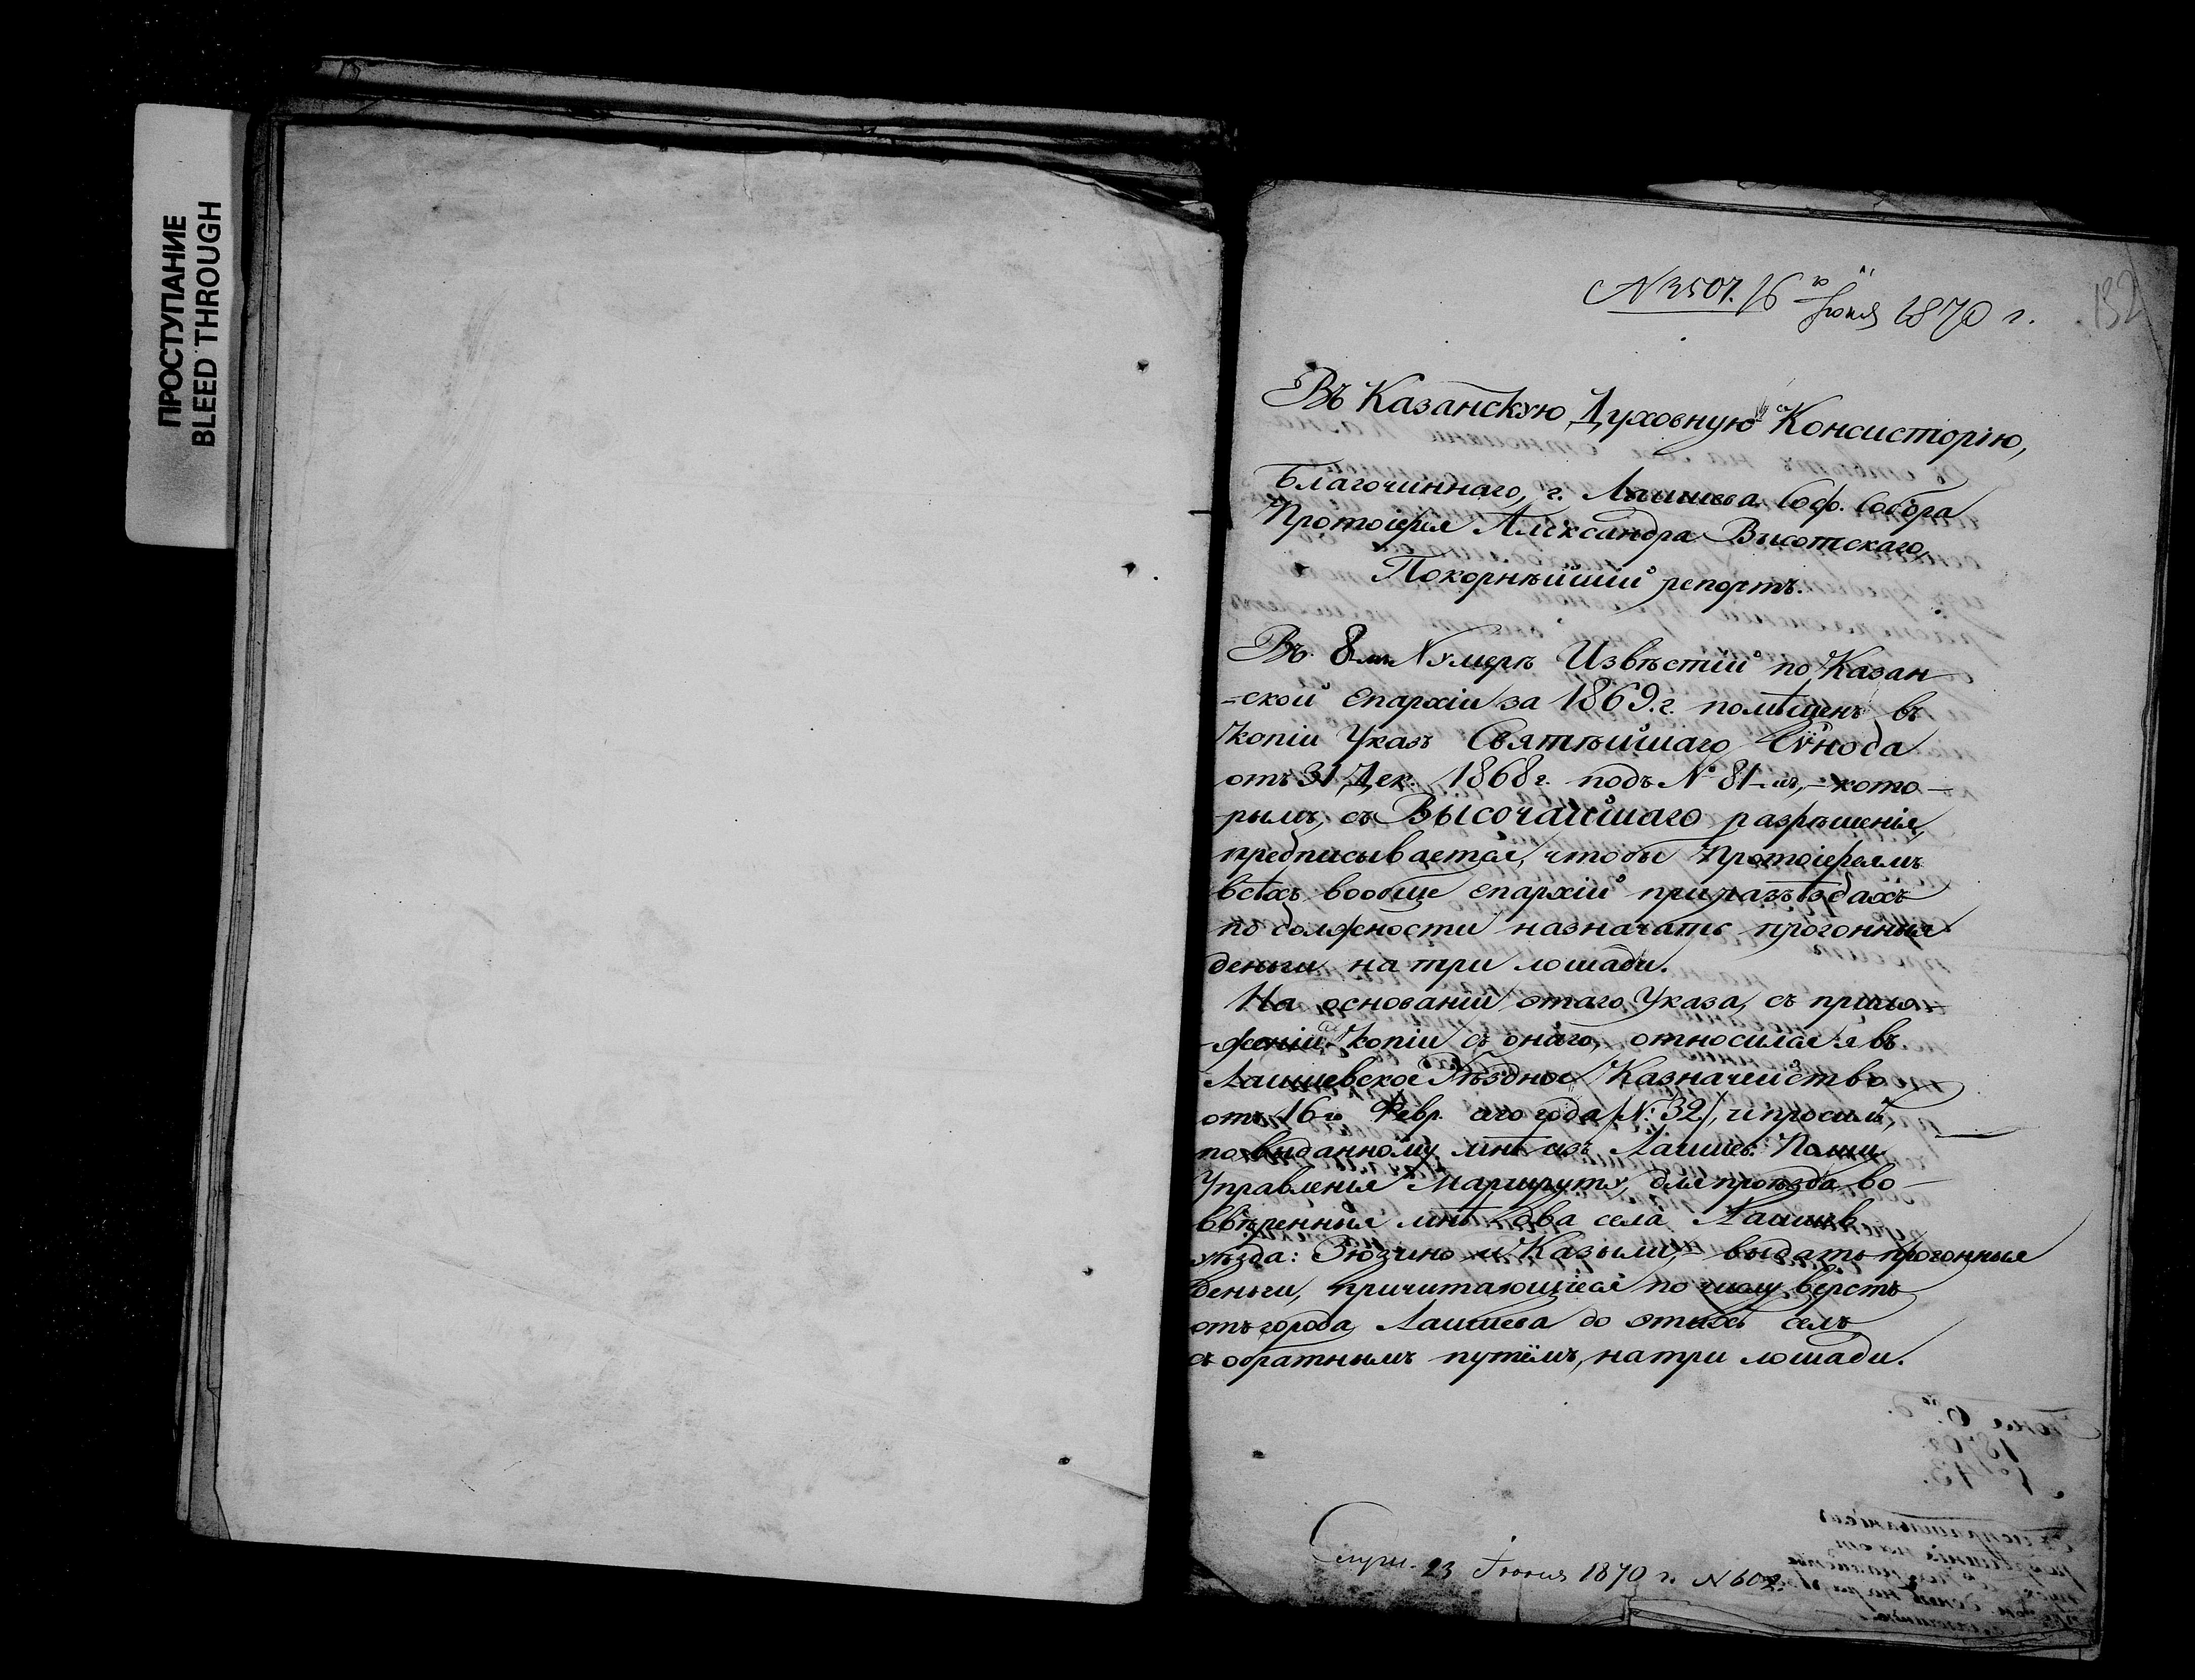 ПРОСТУПАНИЕ
BLEED THROUGH
N 3507. 16го Июня 1870 г.
132
Въ Казанскую Духовную Консисторію,
Благочиннаго, г. Лаишева Соф. Собора
Протоіерея Александра Высотскаго,
Покорнѣйшій репортъ.
Въ 8мъ Нумерѣ Извѣстій по Казан
-ской епархіи за 1869 г. помѣщенъ въ
копіи Указъ Святѣйшаго Сѵнода
отъ 31 Дек. 1868 г. подъ № 81-мъ, – кото–
рымъ, съ Высочайшаго разрѣшенія,
предписывается, чтобы Протоіереямъ
всѣхъ вообще епархій при разъѣздахъ
по должности назначать прогонныя
деньги на три лошади.
На основаніи этаго Указа, съ прило–
женіемъ копіи съ онаго, относился я въ
Лаишевское Уѣздное Казначейство
отъ 16го Февр. сего года (№ 32), и просилъ,
по выданному мнѣ изъ Лаишев. Полиц.
Управленія Маршруту, для проѣзда во–
ввѣренныя мнѣ два села Лаишев.
уѣзда: Зюзино и Казыли, – выдать прогонныя
деньги, причитающіеся по числу верстъ
отъ города Лаишева до этихъ селъ
съ обратнымъ путёмъ, на три лошади.
Слуш. 23 Июня 1870 г. N 602.